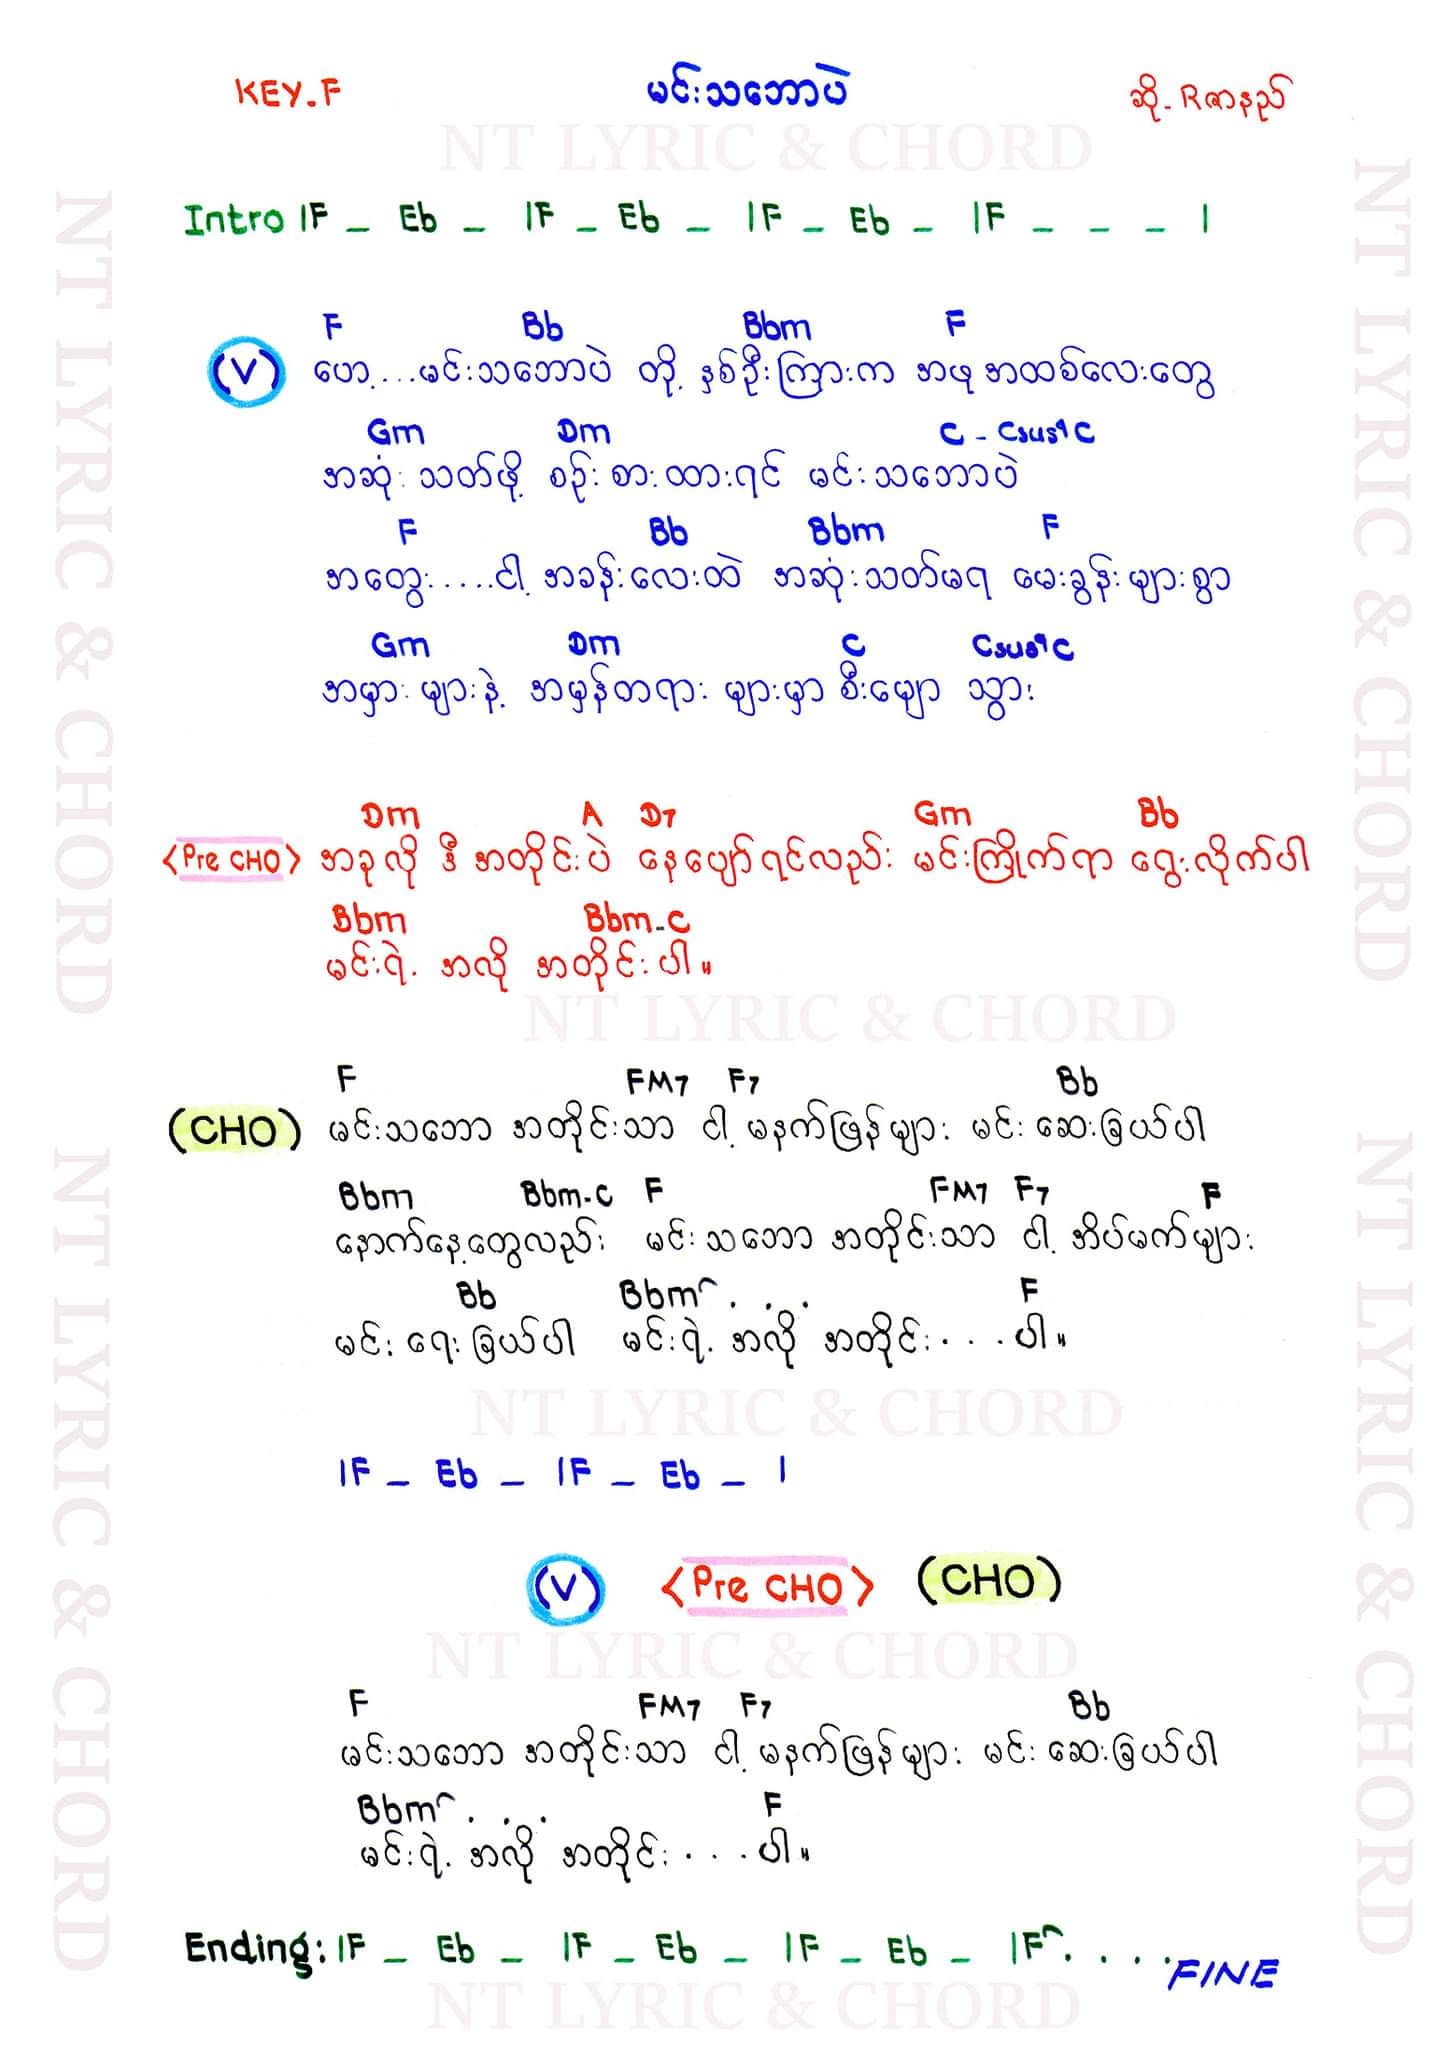 KEY.F မင်းသဘောပဲ ဆို-Rဇာနည်
NT LYRIC & CHORD
Intro |F _ Eb _ |F _ Eb _ |F _ Eb _ |F _ _ _ |
F Bb Bbm F
(V) ဟော့....မင်းသဘောပဲ တို့ နှစ်ဦးကြားက အဖု အထစ်လေးတွေ
Gm Dm C - Csus4 C
အဆုံး သတ်ဖို့ စဉ်းစားထားရင် မင်းသဘောပဲ
F Bb Bbm F
အတွေး.....ငါ့ အခန်းလေးထဲ အဆုံးသတ်မရ မေးခွန်းများစွာ
Gm Dm C Csus4 C
အမှား များနဲ့ အမှန်တရား များမှာ စီးမျော သွား
Dm A D7 Gm Bb
<Pre CHO> အခုလို ဒီ အတိုင်းပဲ နေပျော်ရင်လည်း မင်းကြိုက်ရာ ရွေးလိုက်ပါ
Bbm Bbm-C
မင်းရဲ့ အလို အတိုင်းပါ။
NT LYRIC & CHORD
F FM7 F7 Bb
(CHO) မင်းသဘော အတိုင်းသာ ငါ့ မနက်ဖြန်များ မင်း ဆေးခြယ်ပါ
Bbm Bbm-C F FM7 F7 F
နောက်နေ့တွေလည်း မင်းသဘော အတိုင်းသာ ငါ့ အိပ်မက်များ
Bb Bbm⌒ . . . F
မင်း ရေးခြယ်ပါ မင်းရဲ့ အလို အတိုင်း...ပါ။
NT LYRIC & CHORD
|F _ Eb _ |F _ Eb _ |
(V) <Pre CHO> (CHO)
NT LYRIC & CHORD
F FM7 F7 Bb
မင်းသဘော အတိုင်းသာ ငါ့ မနက်ဖြန်များ မင်း ဆေးခြယ်ပါ
Bbm⌒ . . . F
မင်းရဲ့ အလို အတိုင်း...ပါ။
Ending: |F _ Eb _ |F _ Eb _ |F _ Eb _ |F⌒ . . . .
FINE
NT LYRIC & CHORD
NT LYRIC & CHORD
NT LYRIC & CHORD
NT LYRIC & CHORD
NT LYRIC & CHORD